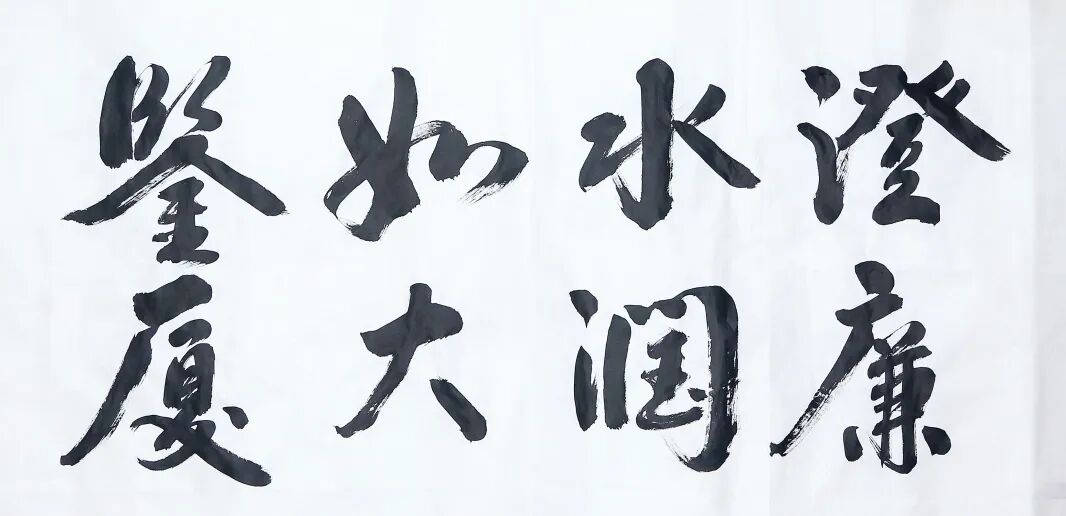 澄水如鉴
廉润大厦